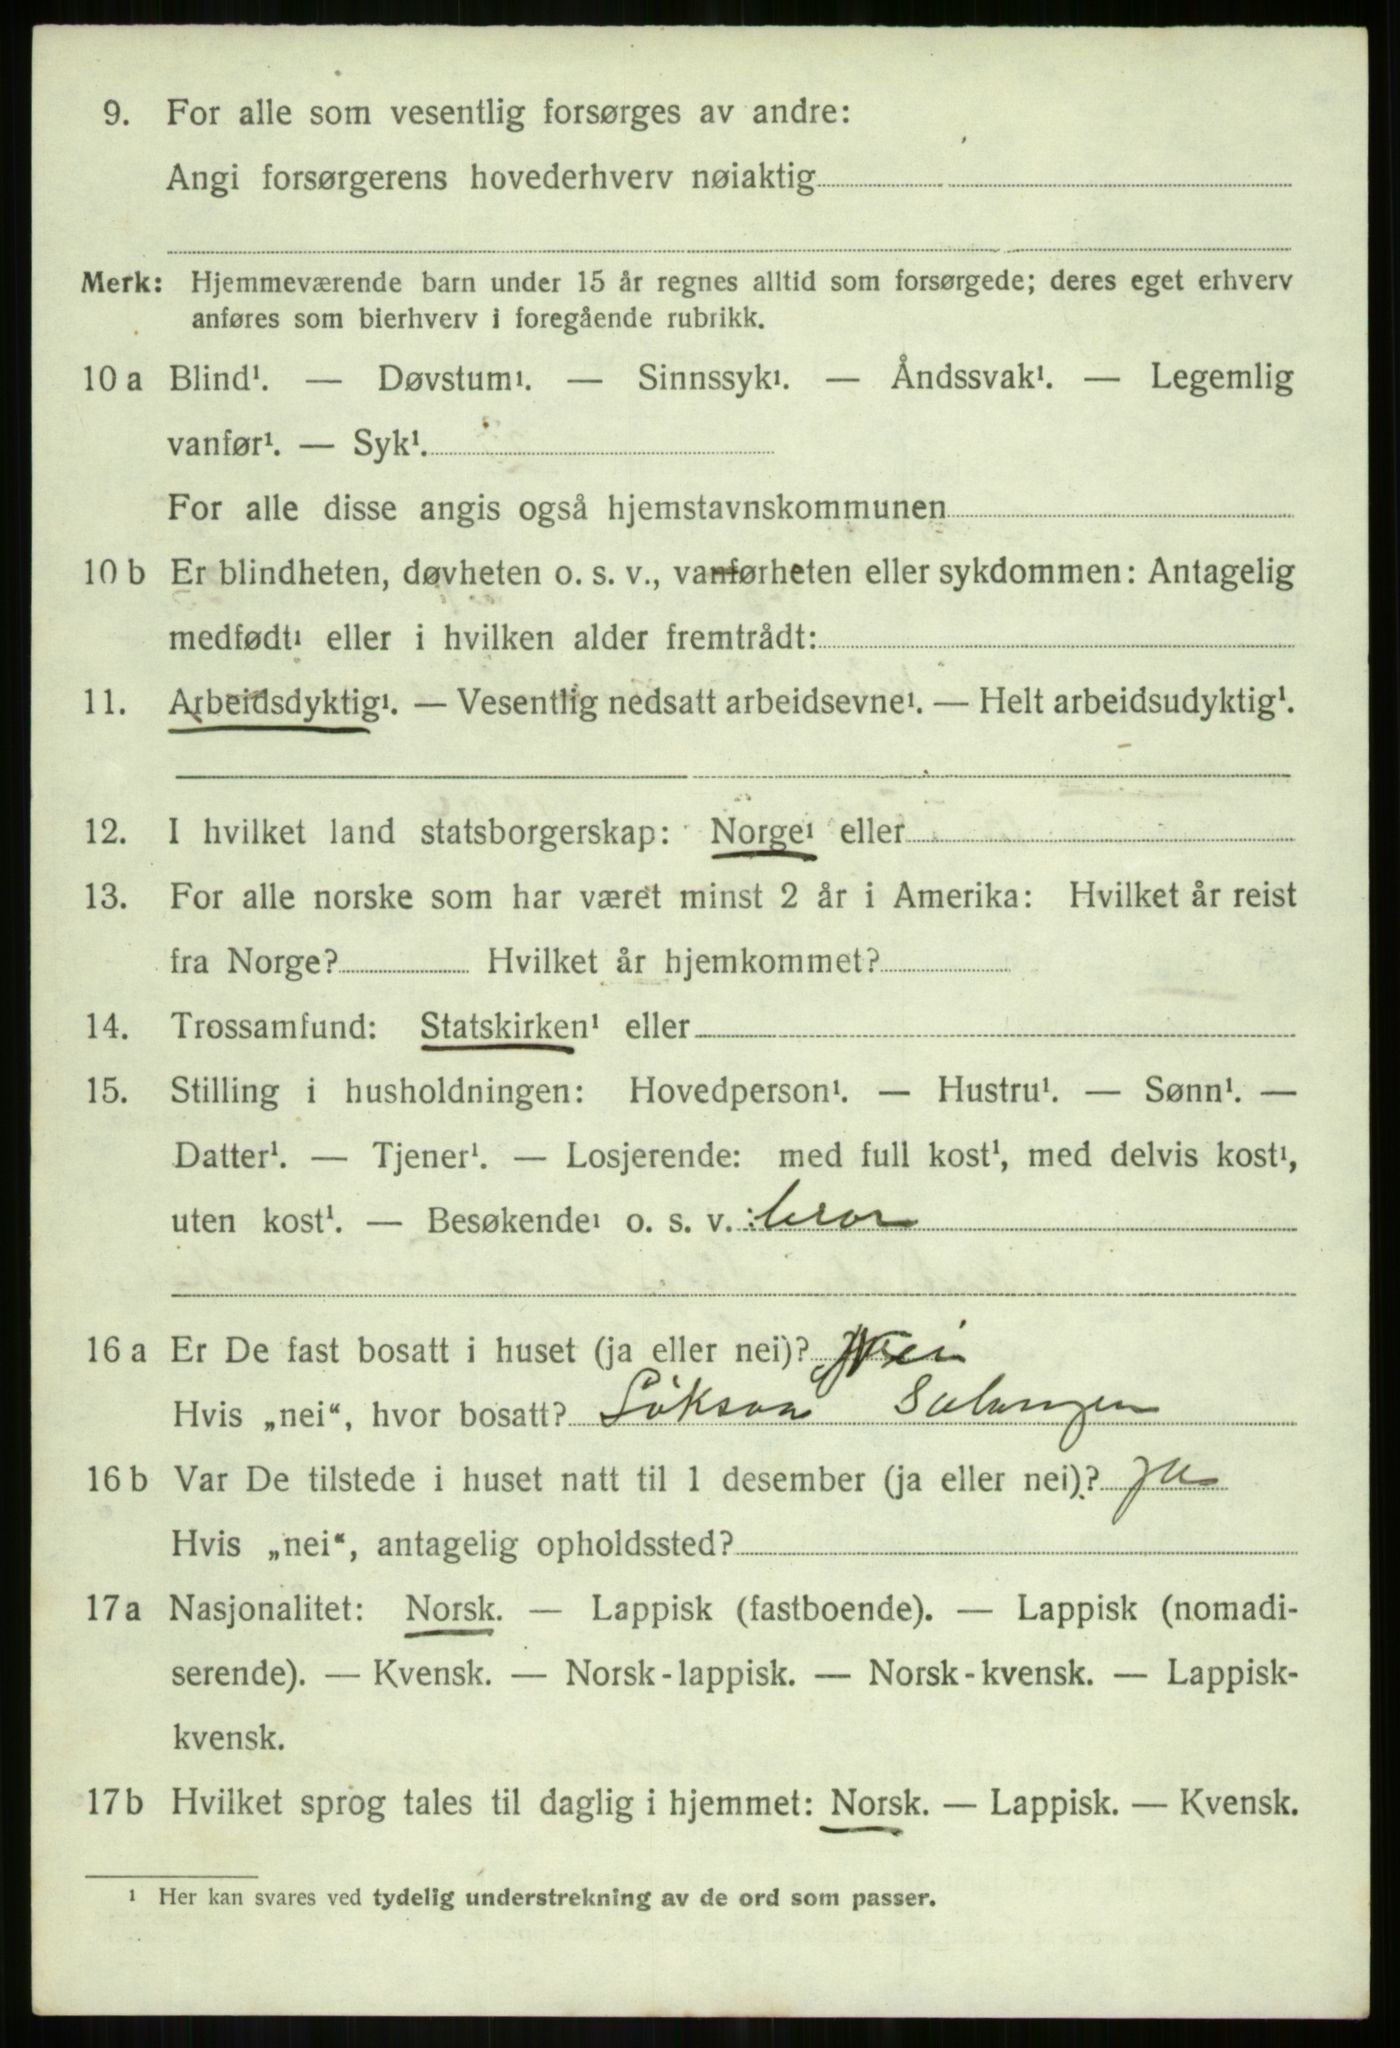 9. For alle som vesentlig forsørges av andre:
Angi forsørgerens hovederhverv nøiaktig
Merk: Hjemmeværende barn under 15 år regnes alltid som forsørgede; deres eget erhverv
anføres som bierhverv i foregående rubrikk.
10 a Blind¹. — Døvstum¹. — Sinnssyk¹. — Åndssvak¹. — Legemlig
vanfør¹. — Syk¹.
For alle disse angis også hjemstavnskommunen
10 b Er blindheten, døvheten o. s. v., vanførheten eller sykdommen: Antagelig
medfødt¹ eller i hvilken alder fremtrådt:
11. Arbeidsdyktig¹. — Vesentlig nedsatt arbeidsevne¹. — Helt arbeidsudyktig¹.
12. I hvilket land statsborgerskap: Norge¹ eller
13. For alle norske som har været minst 2 år i Amerika: Hvilket år reist
fra Norge? Hvilket år hjemkommet?
14. Trossamfund: Statskirken¹ eller
15. Stilling i husholdningen: Hovedperson¹. — Hustru¹. — Sønn¹. —
Datter¹. — Tjener¹. — Losjerende: med full kost¹, med delvis kost¹,
uten kost¹. — Besøkende¹ o. s. v.: bror
16 a Er De fast bosatt i huset (ja eller nei)? Nei
Hvis „nei“, hvor bosatt? Löksaa Salangen
16 b Var De tilstede i huset natt til 1 desember (ja eller nei)? ja
Hvis „nei“, antagelig opholdssted?
17 a Nasjonalitet: Norsk. — Lappisk (fastboende). — Lappisk (nomadi-
serende). — Kvensk. — Norsk-lappisk. — Norsk-kvensk. — Lappisk-
kvensk.
17 b Hvilket sprog tales til daglig i hjemmet: Norsk. — Lappisk. — Kvensk.
¹ Her kan svares ved tydelig understrekning av de ord som passer.